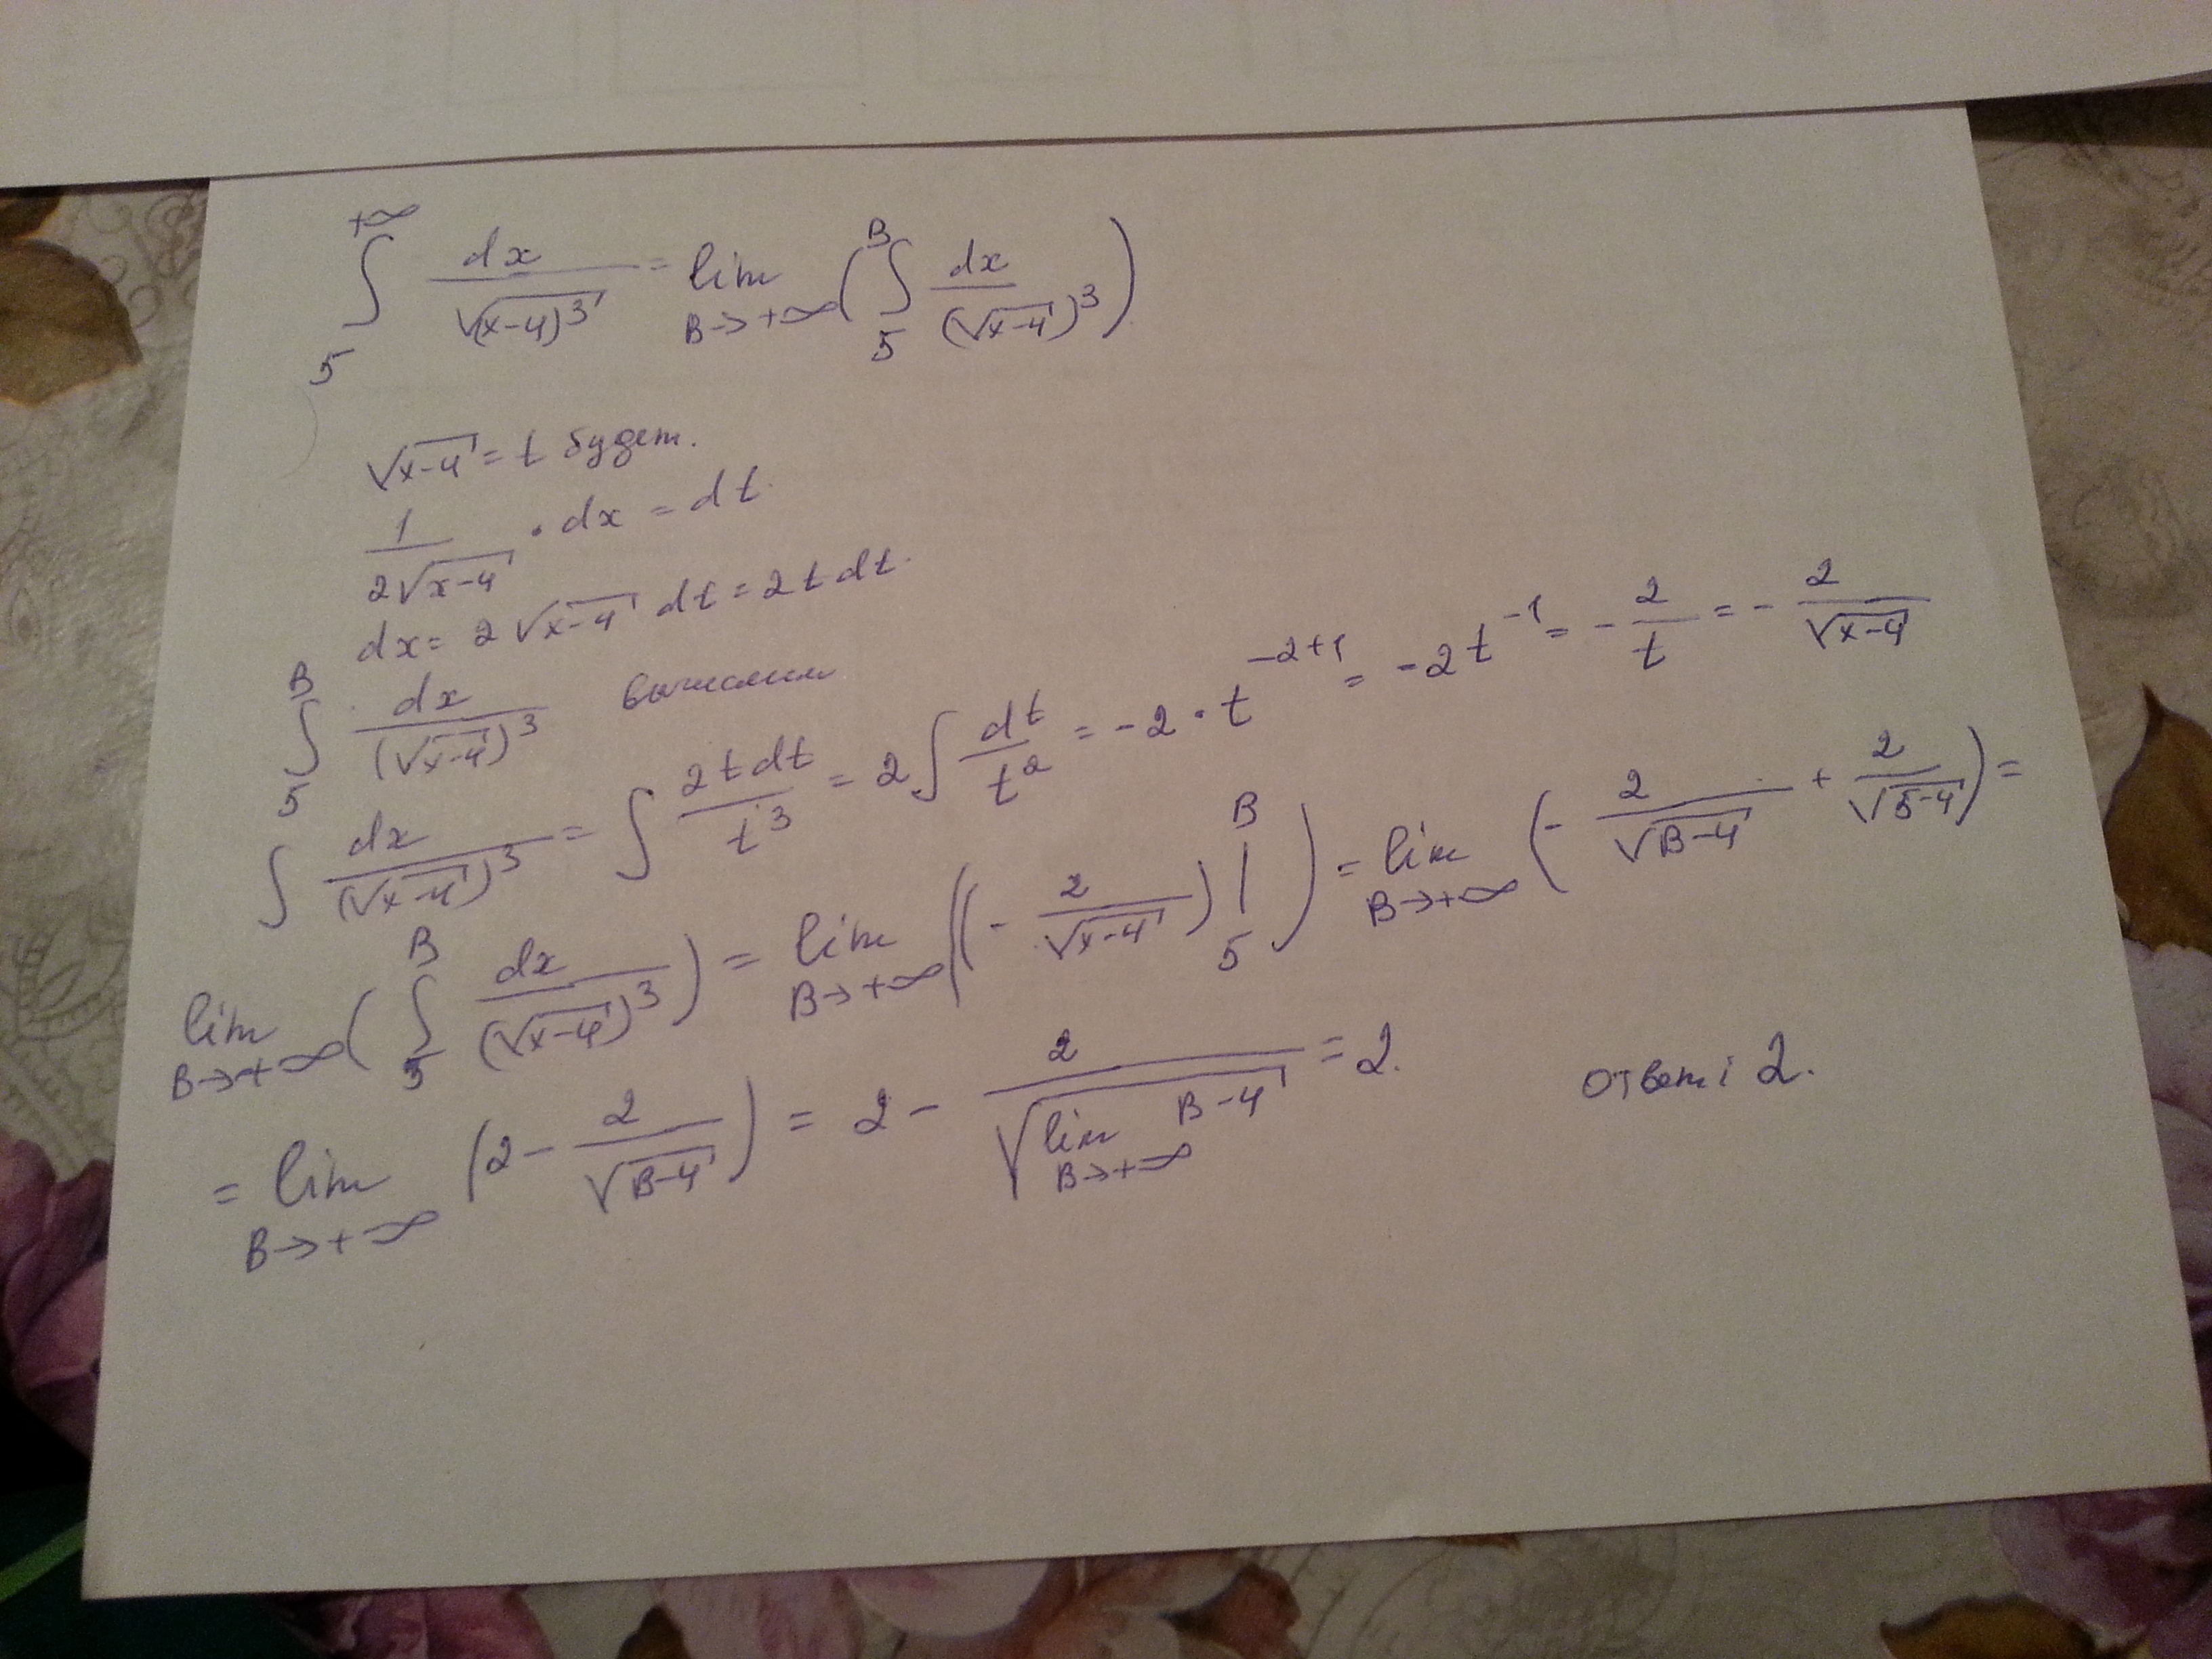 ∫₅^{+∞} dx/√(x-4)³ = lim_{B→+∞} (∫₅^B dx/(√(x-4))³)
√(x-4) = t будет.
1/(2√(x-4)) · dx = dt.
dx = 2√(x-4) dt = 2t dt.
∫₅^B dx/(√(x-4))³ вычислим
∫ dx/(√(x-4))³ = ∫ 2t dt/t³ = 2∫ dt/t² = -2 · t^{-2+1} = -2t^{-1} = -2/t = -2/√(x-4)
lim_{B→+∞} (∫₅^B dx/(√(x-4))³) = lim_{B→+∞} ((-2/√(x-4))|₅^B) = lim_{B→+∞} (-2/√(B-4) + 2/√(5-4)) =
= lim_{B→+∞} (2 - 2/√(B-4)) = 2 - 2/√(lim_{B→+∞} B-4) = 2. ответ: 2.